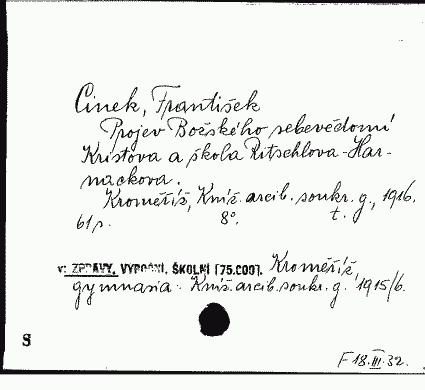 Cinek, František
Projev Božského sebevědomí
Kristova a škola Ritschlova-Har-
nackova.
Kroměříž, Kníž. arcib. soukr. g., 1916.
61 s. 8°. t.
v: ZPRÁVY, VÝROČNÍ, ŠKOLNÍ [75.C00]. Kroměříž,
gymnasia. Kníž. arcib. soukr. g. 1915/6.
S
F 18.III.32.